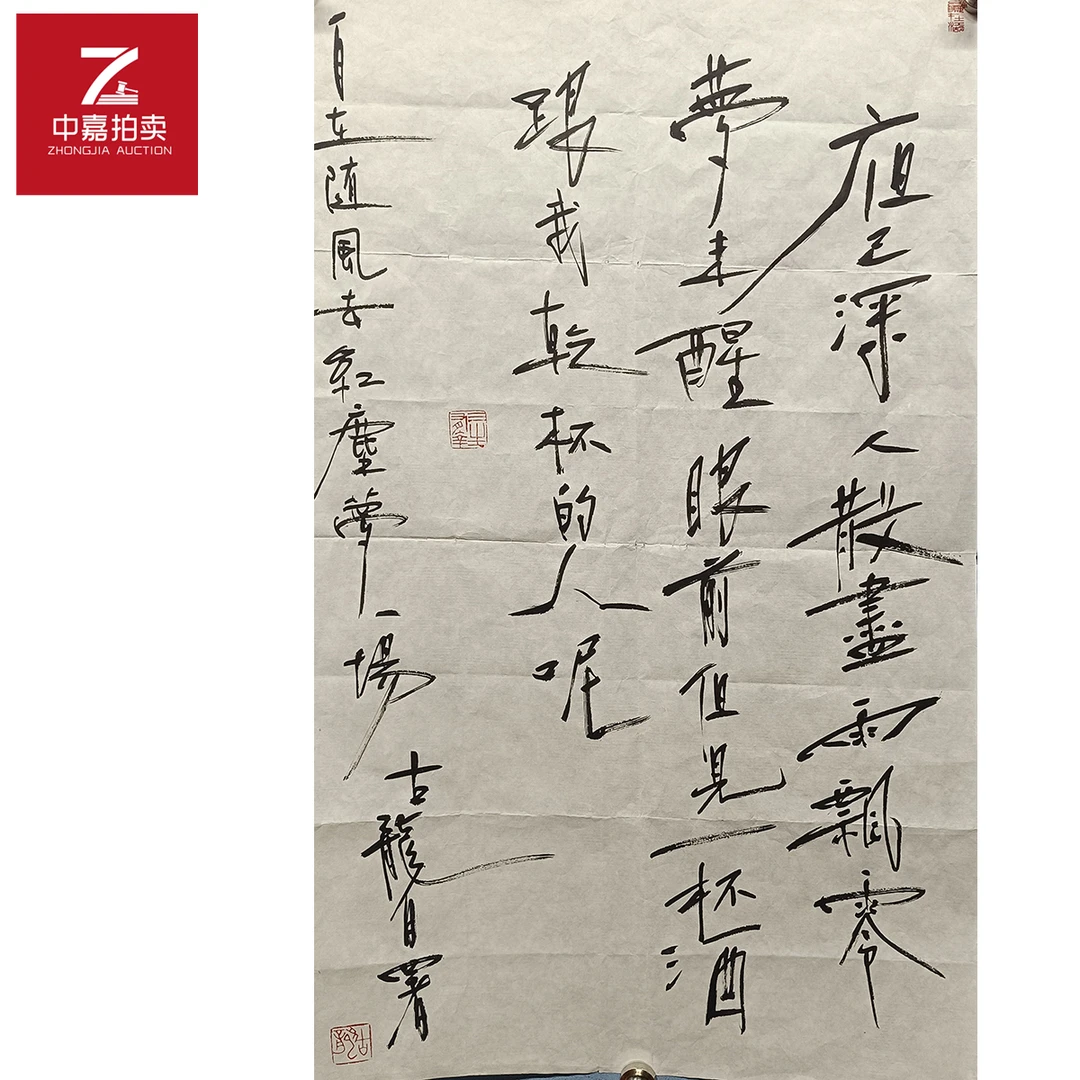 中嘉拍卖
ZHONGJIA AUCTION
夜已深人散盡雨飄零
夢未醒眼前但見一杯酒
跟我乾杯的人呢
自在随風去紅塵夢一場
古龍自署
古龍